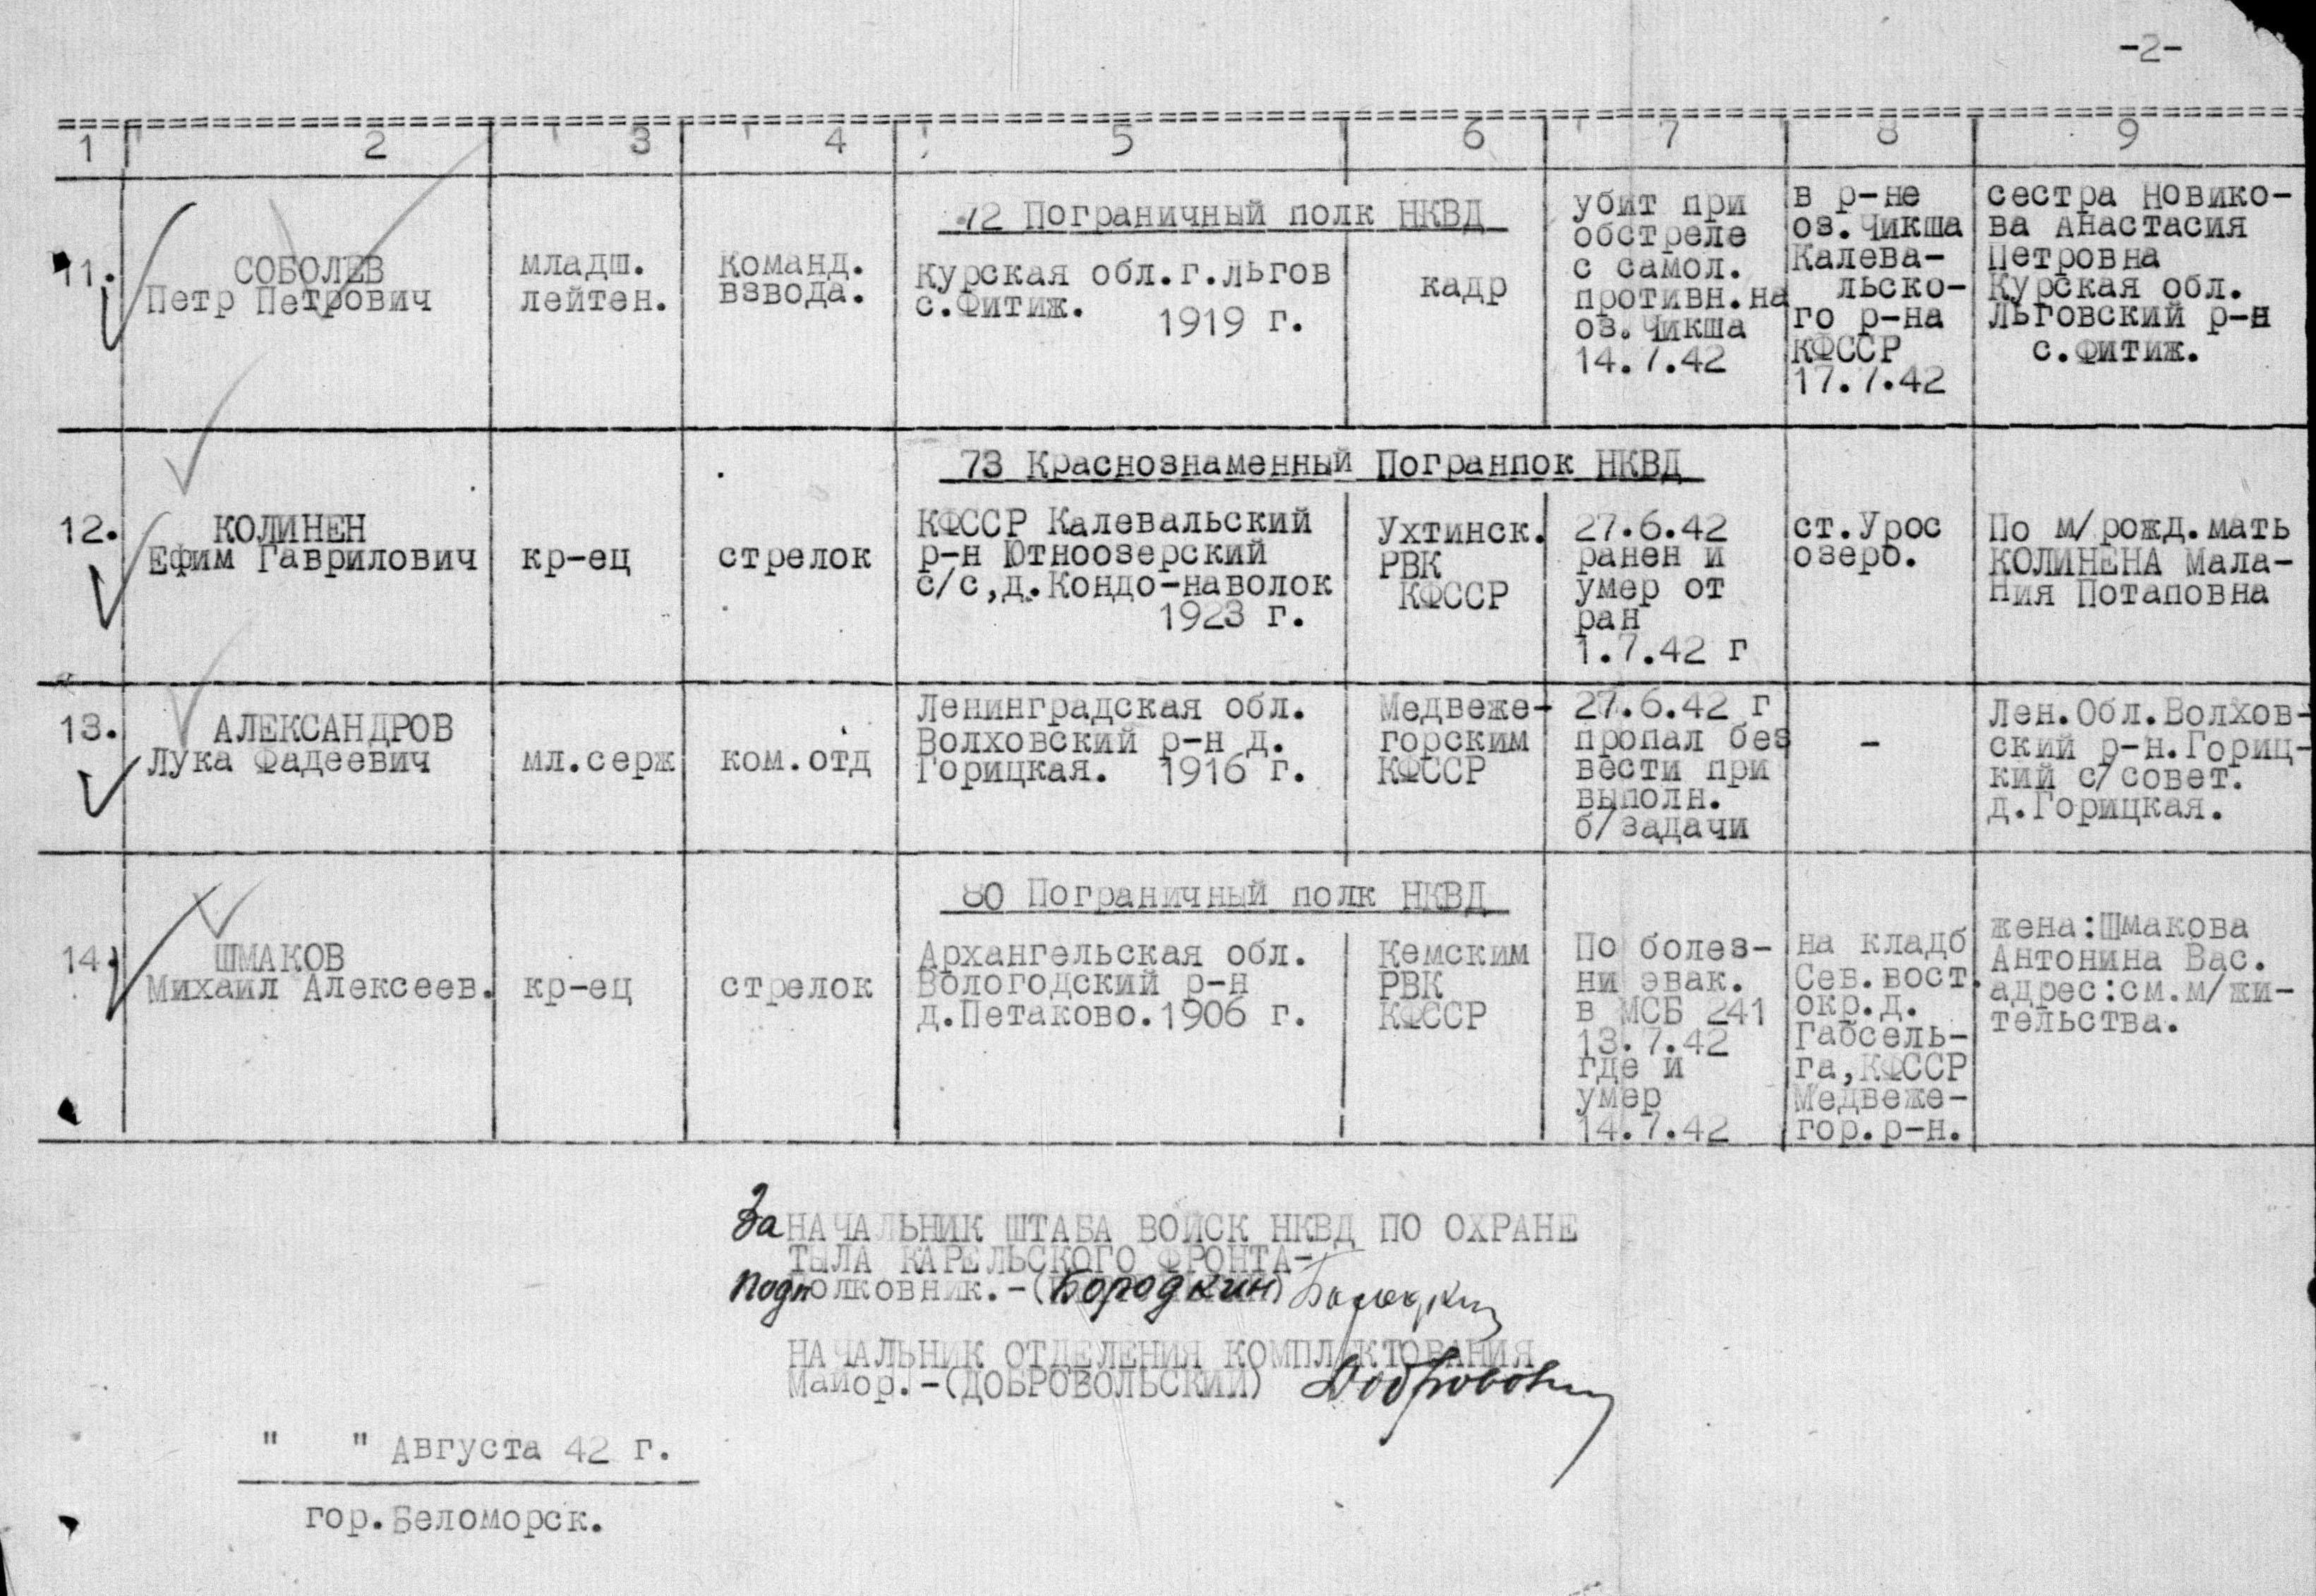 -2-
1 2 3 4 5 6 7 8 9
72 Пограничный полк НКВД
11.
СОБОЛЕВ
Петр Петрович
младш.
лейтен.
команд.
взвода.
Курская обл.г.Льгов
с.Фитиж.
1919 г.
кадр
убит при
обстреле
с самол.
противн.на
оз.Чикша
14.7.42
в р-не
оз.Чикша
Калева-
льско-
го р-на
КФССР
17.7.42
сестра Новико-
ва Анастасия
Петровна
Курская обл.
Льговский р-н
с.Фитиж.
73 Краснознаменный Погранпок НКВД
12.
КОЛИНЕН
Ефим Гаврилович
кр-ец
стрелок
КФССР Калевальский
р-н Ютноозерский
с/с,д.Кондо-наволок
1923 г.
Ухтинск.
РВК
КФССР
27.6.42
ранен и
умер от
ран
1.7.42 г
ст.Урос
озеро.
По м/рожд.мать
КОЛИНЕНА Мала-
ния Потаповна
13.
АЛЕКСАНДРОВ
Лука Фадеевич
мл.серж
ком.отд
Ленинградская обл.
Волховский р-н д.
Горицкая. 1916 г.
Медвеже-
горским
КФССР
27.6.42 г
пропал без
вести при
выполн.
б/задачи
-
Лен.Обл.Волхов-
ский р-н.Гориц-
кий с/совет.
д.Горицкая.
80 Пограничный полк НКВД
14.
ШМАКОВ
Михаил Алексеев.
кр-ец
стрелок
Архангельская обл.
Вологодский р-н
д.Петаково.1906 г.
Кемским
РВК
КФССР
По болез-
ни эвак.
в МСБ 241
13.7.42
где и
умер
14.7.42
на кладб
Сев.вост.
окр.д.
Габсель-
га,КФССР
Медвеже-
гор.р-н.
жена:Шмакова
Антонина Вас.
адрес:см.м/жи-
тельства.
За НАЧАЛЬНИК ШТАБА ВОЙСК НКВД ПО ОХРАНЕ
ТЫЛА КАРЕЛЬСКОГО ФРОНТА-
подполковник.-(Бородкин) Бородкин
НАЧАЛЬНИК ОТДЕЛЕНИЯ КОМПЛЕКТОВАНИЯ
майор.-(ДОБРОВОЛЬСКИЙ)
" " Августа 42 г.
гор.Беломорск.